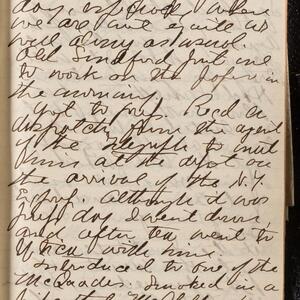 day, especially when
we are not quite as
well away as usual.
Old Sandford put me
to work on the John in
the morning.
Got to press. Recd a
dispatch from the agent
of the Telegraph to meet
him at the depot on
the arrival of the N.Y.
Exprs. Although it was
day I went down
and after tea went to
Utica with him
Introduced to one of the
McQuades. Smoked in a